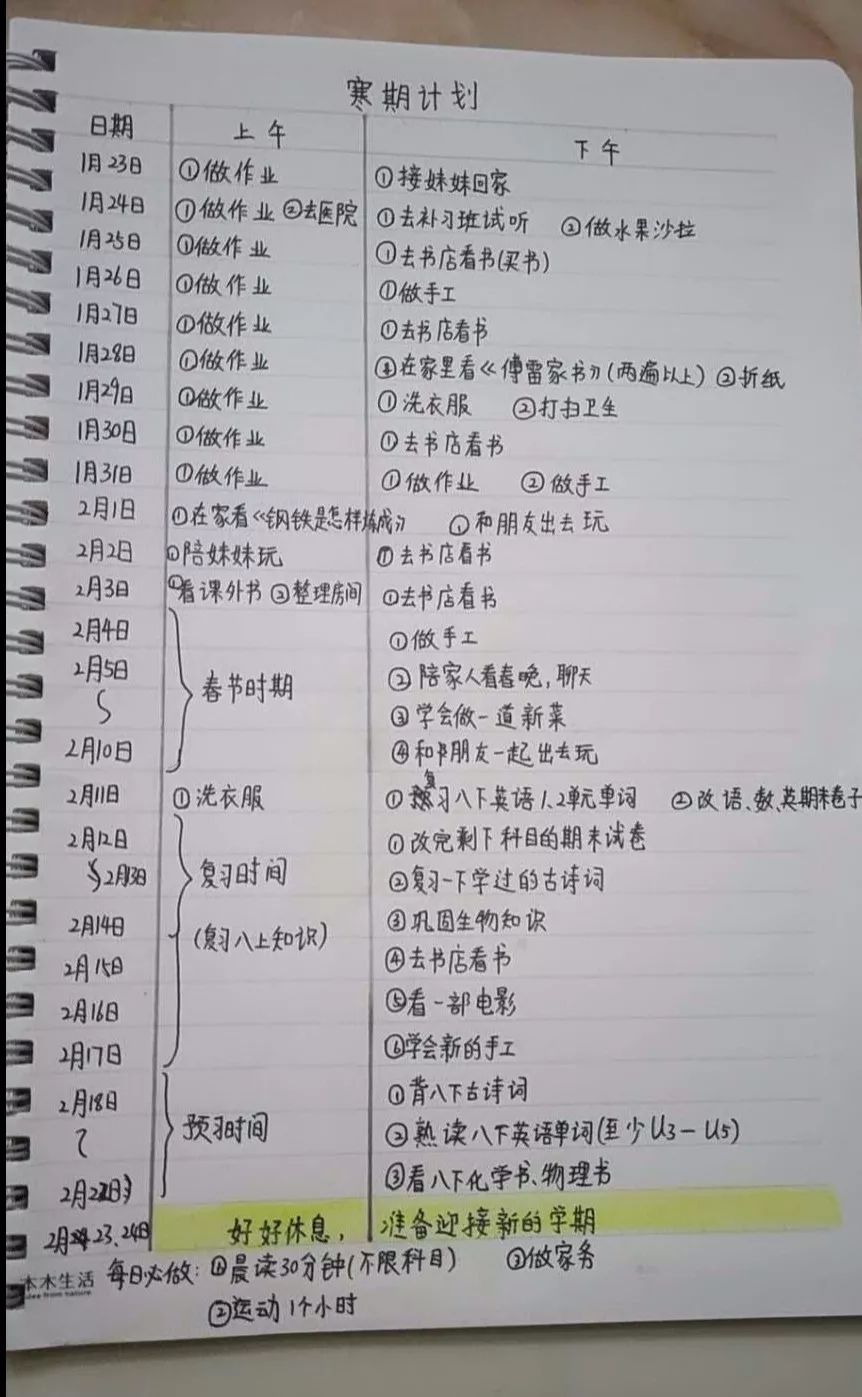 寒期计划
日期 上午 下午
1月23日 ①做作业 ①接妹妹回家
1月24日 ①做作业 ②去医院 ①去补习班试听 ②做水果沙拉
1月25日 ①做作业 ①去书店看书(买书)
1月26日 ①做作业 ①做手工
1月27日 ①做作业 ①去书店看书
1月28日 ①做作业 ①在家里看《傅雷家书》(两遍以上) ②折纸
1月29日 ①做作业 ①洗衣服 ②打扫卫生
1月30日 ①做作业 ①去书店看书
1月31日 ①做作业 ①做作业 ②做手工
2月1日 ①在家看《钢铁是怎样炼成》 ①和朋友出去玩
2月2日 ①陪妹妹玩 ①去书店看书
2月3日 ①看课外书 ②整理房间 ①去书店看书
2月4日 ①做手工
2月5日 春节时期 ②陪家人看春晚,聊天
〜 ③学会做一道新菜
2月10日 ④和朋友一起出去玩
2月11日 ①洗衣服 ①复习八下英语1、2单元单词 ②改语、数、英期末卷子
2月12日 ①改完剩下科目的期末试卷
〜2月13日 复习时间 ②复习一下学过的古诗词
2月14日 (复习八上知识) ③巩固生物知识
2月15日 ④去书店看书
2月16日 ⑤看一部电影
2月17日 ⑥学会新的手工
2月18日 ①背八下古诗词
〜 预习时间 ②熟读八下英语单词(至少U3-U5)
2月22日 ③看八下化学书、物理书
2月23、24日 好好休息, 准备迎接新的学期
每日必做: ①晨读30分钟(不限科目) ③做家务
②运动1个小时
本木生活
idea from nature